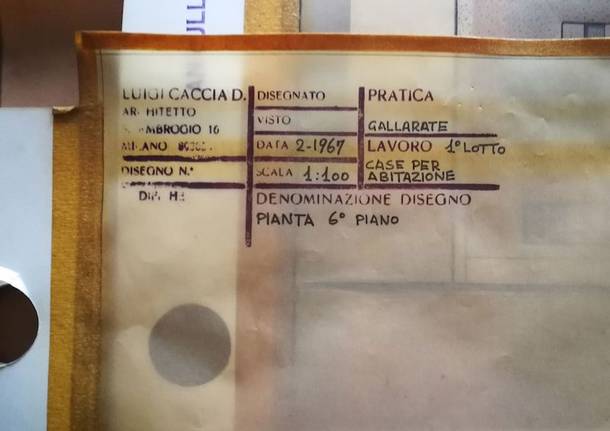 ULL
LUIGI CACCIA D.
ARCHITETTO
S. AMBROGIO 16
MILANO
DISEGNO N.°
DISEGNATO
VISTO
DATA 2-1967
SCALA 1:100
PRATICA
GALLARATE
LAVORO 1° LOTTO
CASE PER
ABITAZIONE
DENOMINAZIONE DISEGNO
PIANTA 6° PIANO